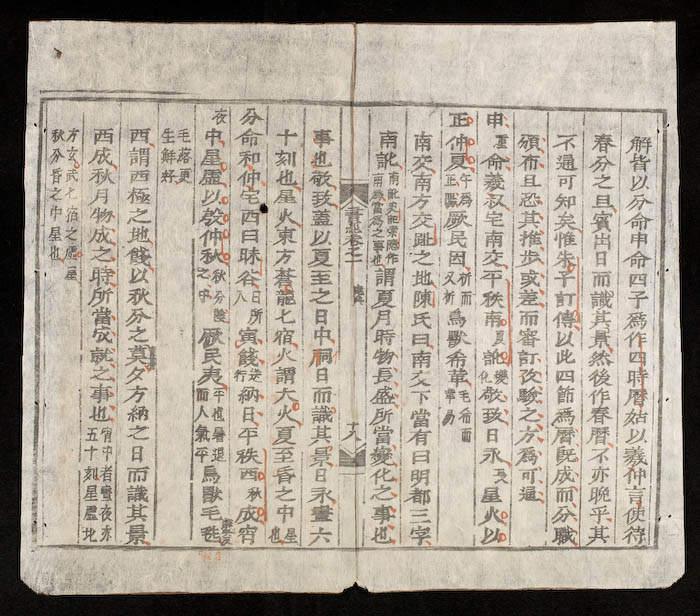 解皆以分命申命四子爲作四時曆姑以羲仲言使待
春分之旦賓出日而識其景然後作春曆不亦晚乎其
不通可知矣惟朱子訂傳以此四節爲曆旣成而分職
頒布且恐其推步或差而審訂改驗之方爲可通
申重命羲叔宅南交平秩南夏訛化變敬致日永晝星火以
正仲夏午爲正陽厥民因析而又析鳥獸希革毛希而革易
南交南方交趾之地陳氏曰南交下當有曰明都三字
南訛南訛史記索隱作南爲當爲之事也謂夏月時物長盛所當變化之事也
書卷之一
十八
事也敬致蓋以夏至之日中祠日而識其景日永晝六
十刻也星火東方蒼龍七宿火謂大火夏至昏之中星也
分命和仲宅西曰昧谷日所入寅餞送行納日平秩西秋成宵
夜中星虛以殷仲秋秋分陰之中厥民夷暑退而人氣平也鳥獸毛毨
毛落更生鮮好
西謂西極之地餞以秋分之莫夕方納之日而識其景
西成秋月物成之時所當成就之事也宵中者晝夜亦五十刻星虛北
方玄武七宿之虛星秋分昏之中星也